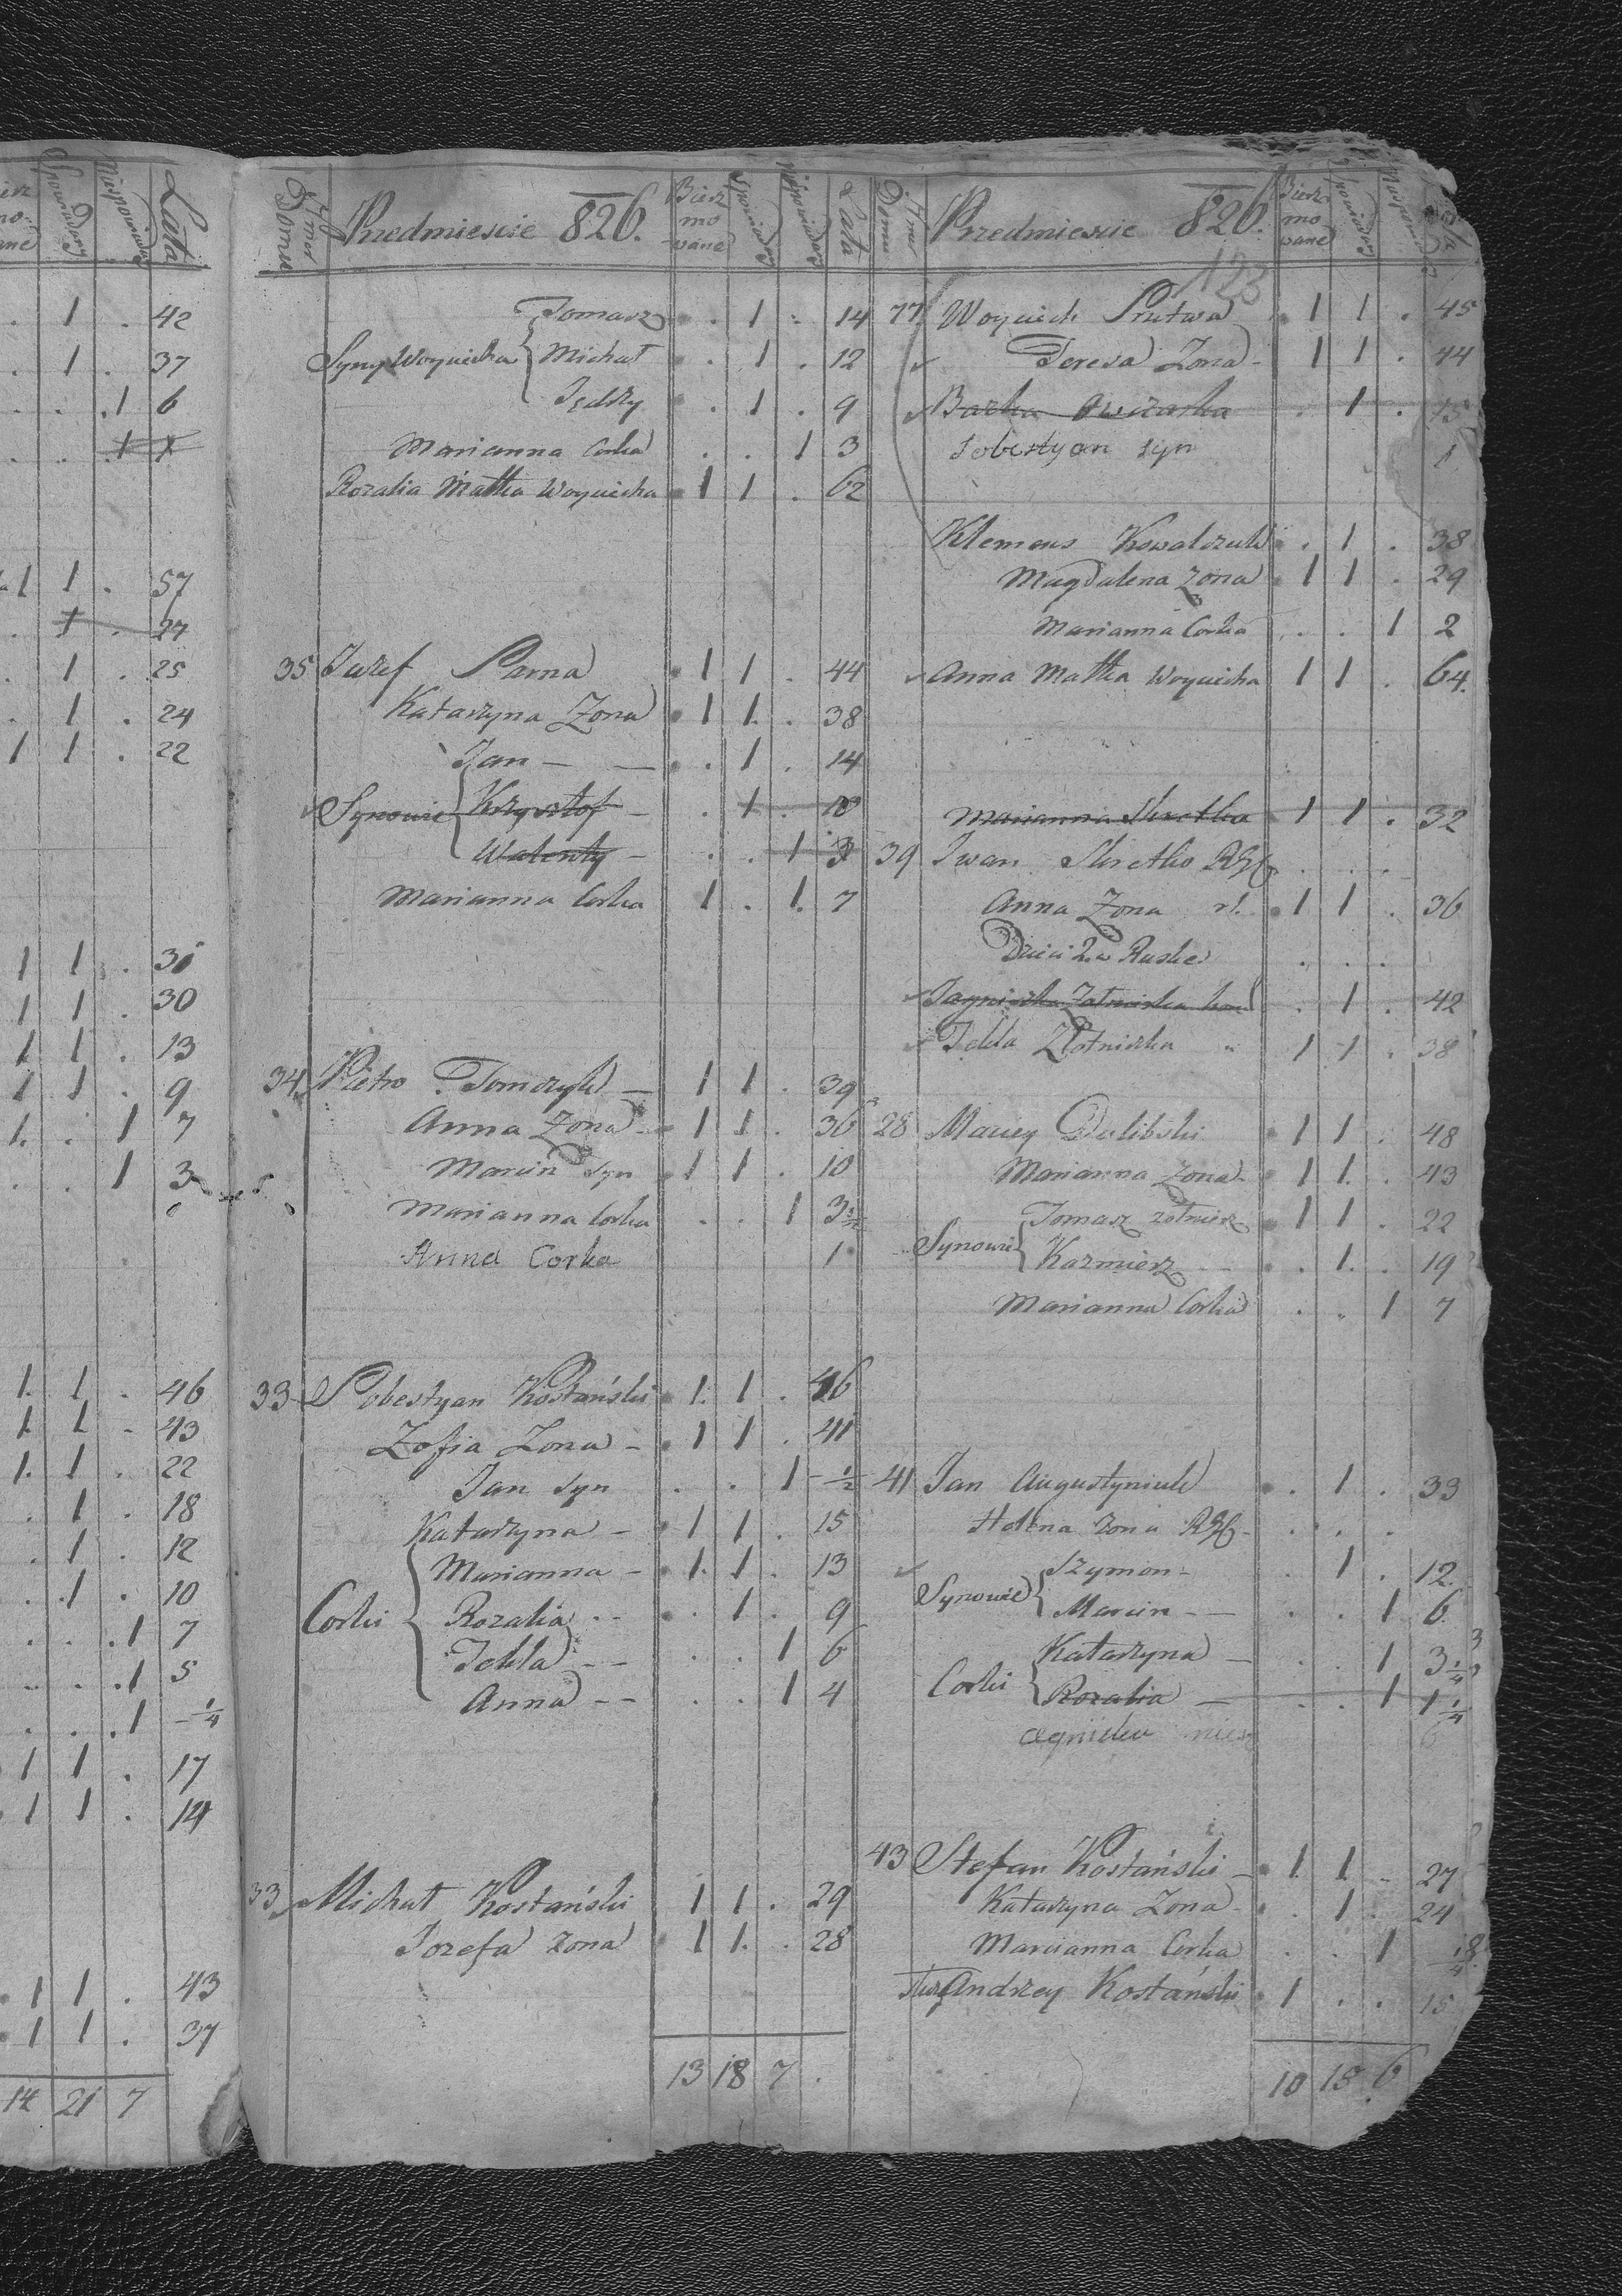 Lata
. 1 . 42
. 1 . 37
. . . 1 6
1 1 . 57
27
. 1 . 25
. 1 . 24
1 1 . 22
1 1 . 30
1 1 . 13
1 1 . 9
1. . 1 7
. . 1 3
1. 1 . 46
1 1 - 43
1. 1 . 22
. 1 . 18
. 1 . 12
. 1 . 10
. . . 1 7
. . . 1 5
. . . 1 - 1/4
1 1 . 17
1 1 . 14
. 1 1 . 43
. 1 1 . 37
14 21 7
Numer Domu Przedmiescie 826. Bierzmowane Spowiadany Niespowiadany Lata
Tomasz . 1 . 14
Syny Woyciecha { Michał . 1 . 12
Jędrzy . 1 . 9
Marianna Corka . . 1 3
Rozalia Matka Woyciecha 1 1 . 62
35 Jozef Parna 1 1 . 44
Katarzyna Zona 1 1. . 38
Jan - . 1 . 14
Synowie { Krzysztof - . 1 . 10
Walenty - . . 1 3
Marianna Corka 1 . 1. 7
34 Pietro Tomczyk 1 1 . 39
Anna Zona 1 1 . 36
Marcin Syn 1 1 . 10
Marianna Corka . . 1 3
Anna Corka 1
33 Sobestyan Kostański 1. 1 . 46
Zofia Zona - 1 1 . 41
Jan Syn . . 1 - 1/2
Katarzyna - 1 1 . 15
Marianna - 1. 1 . 13
Corki { Rozalia - - . 1 . 9
Tekla - - . . 1 6
Anna - - . . 1 4
33 Michał Kostański 1 1 . 29
Jozefa Zona 1 1. . 28
13 18 7 .
Numer Domu Przedmiescie 826. Bierzmowane
123
77 Woyciech Prutwa 1 1 . 45
Teresa Zona - 1 1 . 44
Barka Owczarka . 1 . 15
Sobestyan syn 1
Klemens Kowalczuk . 1 . 38
Magdalena Zona 1 1 . 29
Marianna Corka . . 1 2
Anna Matka Woyciecha 1 1 . 64.
Marianna Skretka 1 1 . 32
39 Iwan Skretko RG . . .
Anna Zona rl. 1 1 . 36
Dzieci 2. w Ruskie . . .
Jagnieszka Zołnierka 1 . 42
Tekla Złotniczka " 1 1 . 38
28 Maciey Dolibski 1 1 . 48
Marianna Zona - 1 1. . 43
Tomasz zołnierz 1 1 . 22
Synowie { Kazmierz - - . 1. . 19
Marianna Corka . . 1 7
41 Jan Augustyniuk . 1 . 33
Helena Zona RG - . . .
Szymon - . 1 . 12.
Synowie { Marcin - - . . 1 6
Katarzyna - . . 1 3 1/4
Corki { Rozalia - . . 1 1 1/4
43 Stefan Kostański - 1. 1 . 27
Katarzyna Zona - . 1 . 24
Marcianna Corka . . 1
Andrzey Kostański 1 . . 15
10 18 6